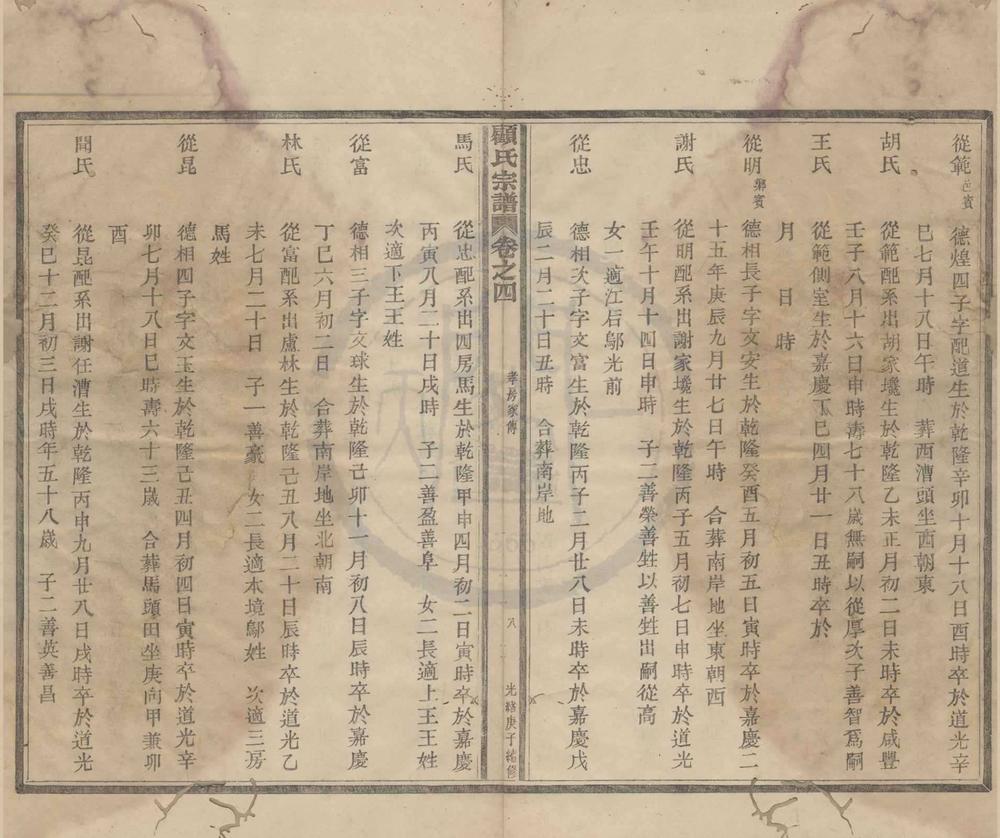 從範邑賓 德煌四子字配道生於乾隆辛卯十月十八日酉時卒於道光辛
巳七月十八日午時 葬西漕頭坐西朝東
胡氏 從範配系出胡家堘生於乾隆乙未正月初二日未時卒於咸豐
壬子八月十六日申時壽七十八歲無嗣以從厚次子善智爲嗣
王氏 從範側室生於嘉慶丁巳四月廿一日丑時卒於
月 日 時
從明鄉賓 德相長子字文安生於乾隆癸酉五月初五日寅時卒於嘉慶二
十五年庚辰九月廿七日午時 合葬南岸地坐東朝西
謝氏 從明配系出謝家堘生於乾隆丙子五月初七日申時卒於道光
壬午十月十四日申時 子二善榮善甡以善甡出嗣從高
女一適江后鄔光前
從忠 德相次子字文富生於乾隆丙子二月廿八日未時卒於嘉慶戊
辰二月二十日丑時 合葬南岸地
顧氏宗譜 卷之四 孝房家傳 八 光緒庚子緒修
馬氏 從忠配系出四房馬生於乾隆甲申四月初二日寅時卒於嘉慶
丙寅八月二十日戌時 子二善盈善阜 女二長適上王王姓
次適下王王姓
從富 德相三子字文球生於乾隆己卯十一月初八日辰時卒於嘉慶
丁巳六月初二日 合葬南岸地坐北朝南
林氏 從富配系出盧林生於乾隆己丑八月二十日辰時卒於道光乙
未七月二十日 子一善豪 女二長適本境鄔姓 次適三房
馬姓
從昆 德相四子字文玉生於乾隆己丑四月初四日寅時卒於道光辛
卯七月十八日巳時壽六十三歲 合葬馬頭田坐庚向甲兼卯
酉
聞氏 從昆配系出謝任漕生於乾隆丙申九月廿八日戌時卒於道光
癸巳十二月初三日戌時年五十八歲 子二善英善昌